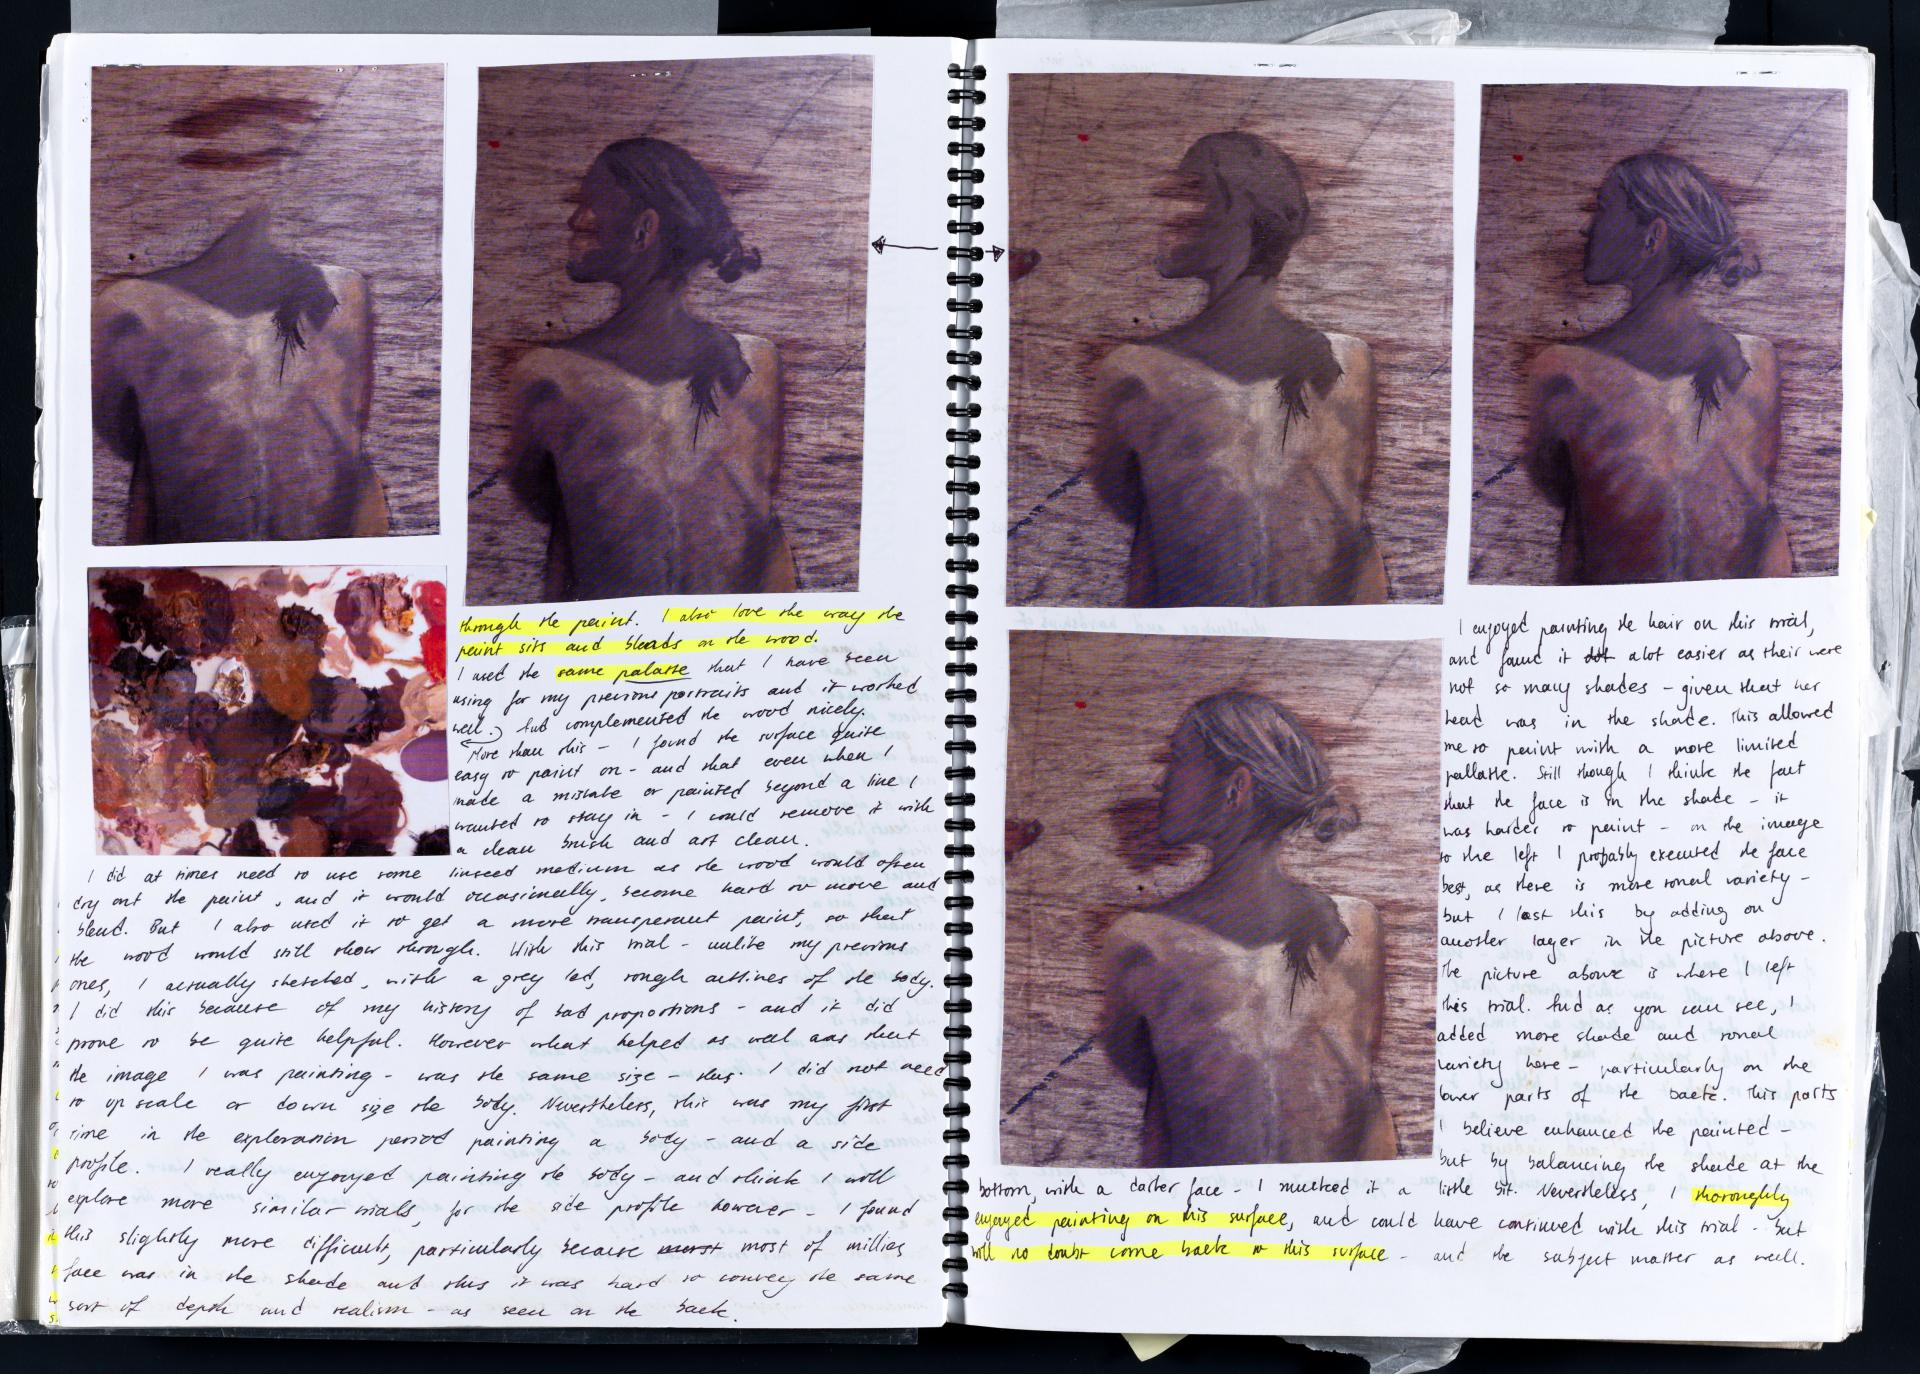 through the paint. I also love the way the
paint sits and bleads on the wood.
I used the same palatte that I have been
using for my previous portraits and it worked
well. but complemented the wood nicely.
More than this - I found the surface quite
easy to paint on - and that even when I
made a mistake or painted beyond a line I
wanted to stay in - I could remove it with
a clean brush and art clean.
I did at times need to use some linseed medium as the wood would often
dry out the paint, and it would occasionally, become hard to move and
blend. But I also used it to get a more transparent paint, so that
the wood would still show through. With this trial - unlike my previous
ones, I actually sketched, with a grey led, rough outlines of the body.
I did this because of my history of bad proportions - and it did
prove to be quite helpful. However what helped as well was that
the image I was painting - was the same size - thus I did not need
to up scale or down size the body. Nevertheless, this was my first
time in the exploration period painting a body - and a side
profile. I really enjoyed painting the body - and think I will
explore more similar trials, for the side profile however - I found
this slightly more difficult, particularly because most most of millies
face was in the shade and thus it was hard to convey the same
sort of depth and realism - as seen on the back.
I enjoyed painting the hair on this trial,
and found it alot easier as their were
not so many shades - given that her
head was in the shade. This allowed
me to paint with a more limited
pallatte. Still though I think the fact
that the face is in the shade - it
was harder to paint - on the image
to the left I probably executed the face
best, as there is more tonal variety -
but I lost this by adding on
another layer in the picture above.
The picture above is where I left
this trial. And as you can see, I
added more shade and tonal
variety here - particularly on the
lower parts of the back. This parts
I believe enhanced the painted -
but by balancing the shade at the
bottom, with a darker face - I mucked it a little bit. Nevertheless, I thoroughly
enjoyed painting on this surface, and could have continued with this trial - but
will no doubt come back to this surface - and the subject matter as well.